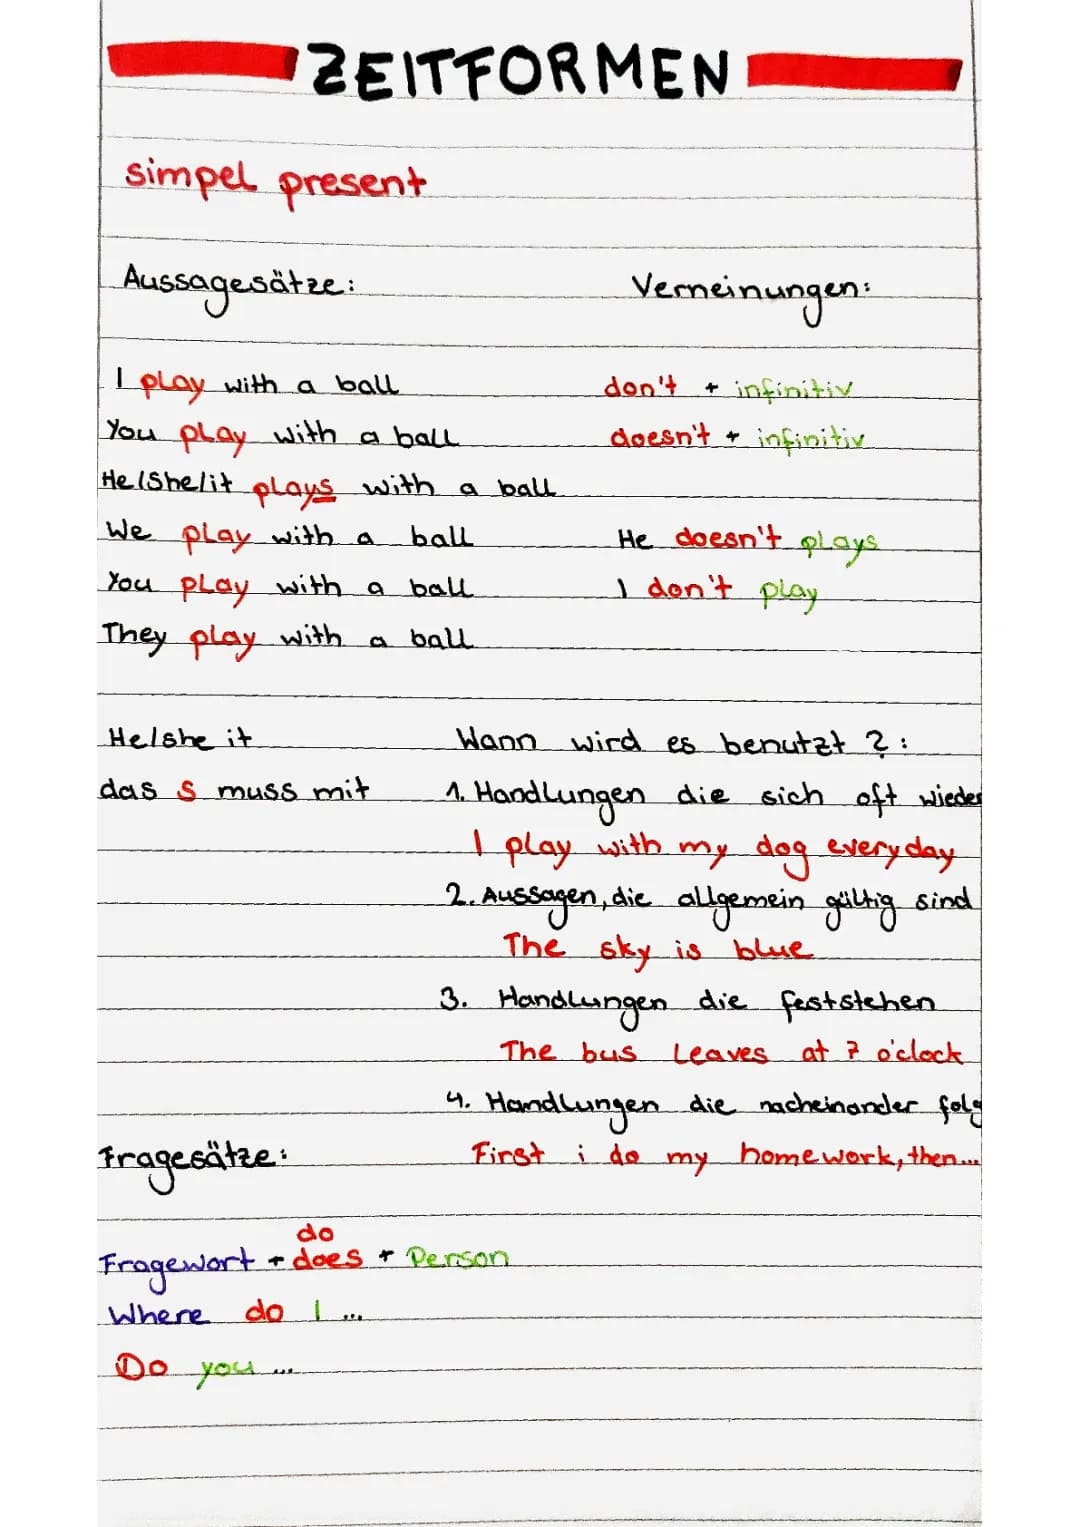 ZEITFORMEN
simpel present
Aussagesätze:
Verneinungen:
I play with a ball
You play with a ball
He/She/it plays with a ball
We play with a ball
You play with a ball
They play with a ball
don't + infinitiv
doesn't + infinitiv
He doesn't plays
I don't play
He/she it
das S muss mit
Wann wird es benutzt ? :
1. Handlungen die sich oft wieder
I play with my dog everyday
2. Aussagen, die allgemein gültig sind
The sky is blue
3. Handlungen die feststehen
The bus leaves at 7 o'clock
4. Handlungen die nacheinander folg
First i do my homework, then...
Fragesätze:
do
Fragewort + does + Person
Where do I ...
Do you ...